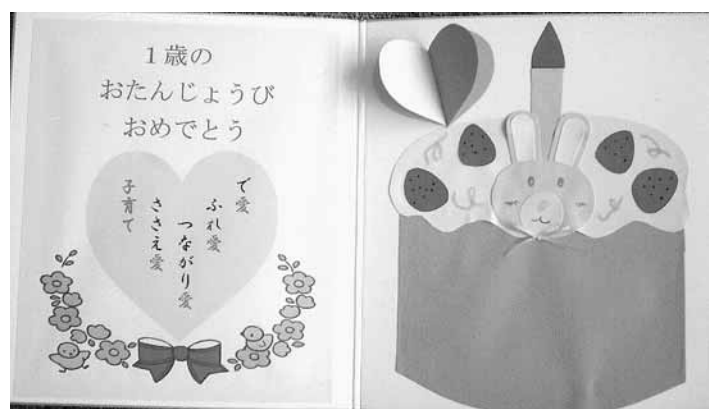 1歳の
おたんじょうび
おめでとう
で愛
ふれ愛
つながり愛
ささえ愛
子育て